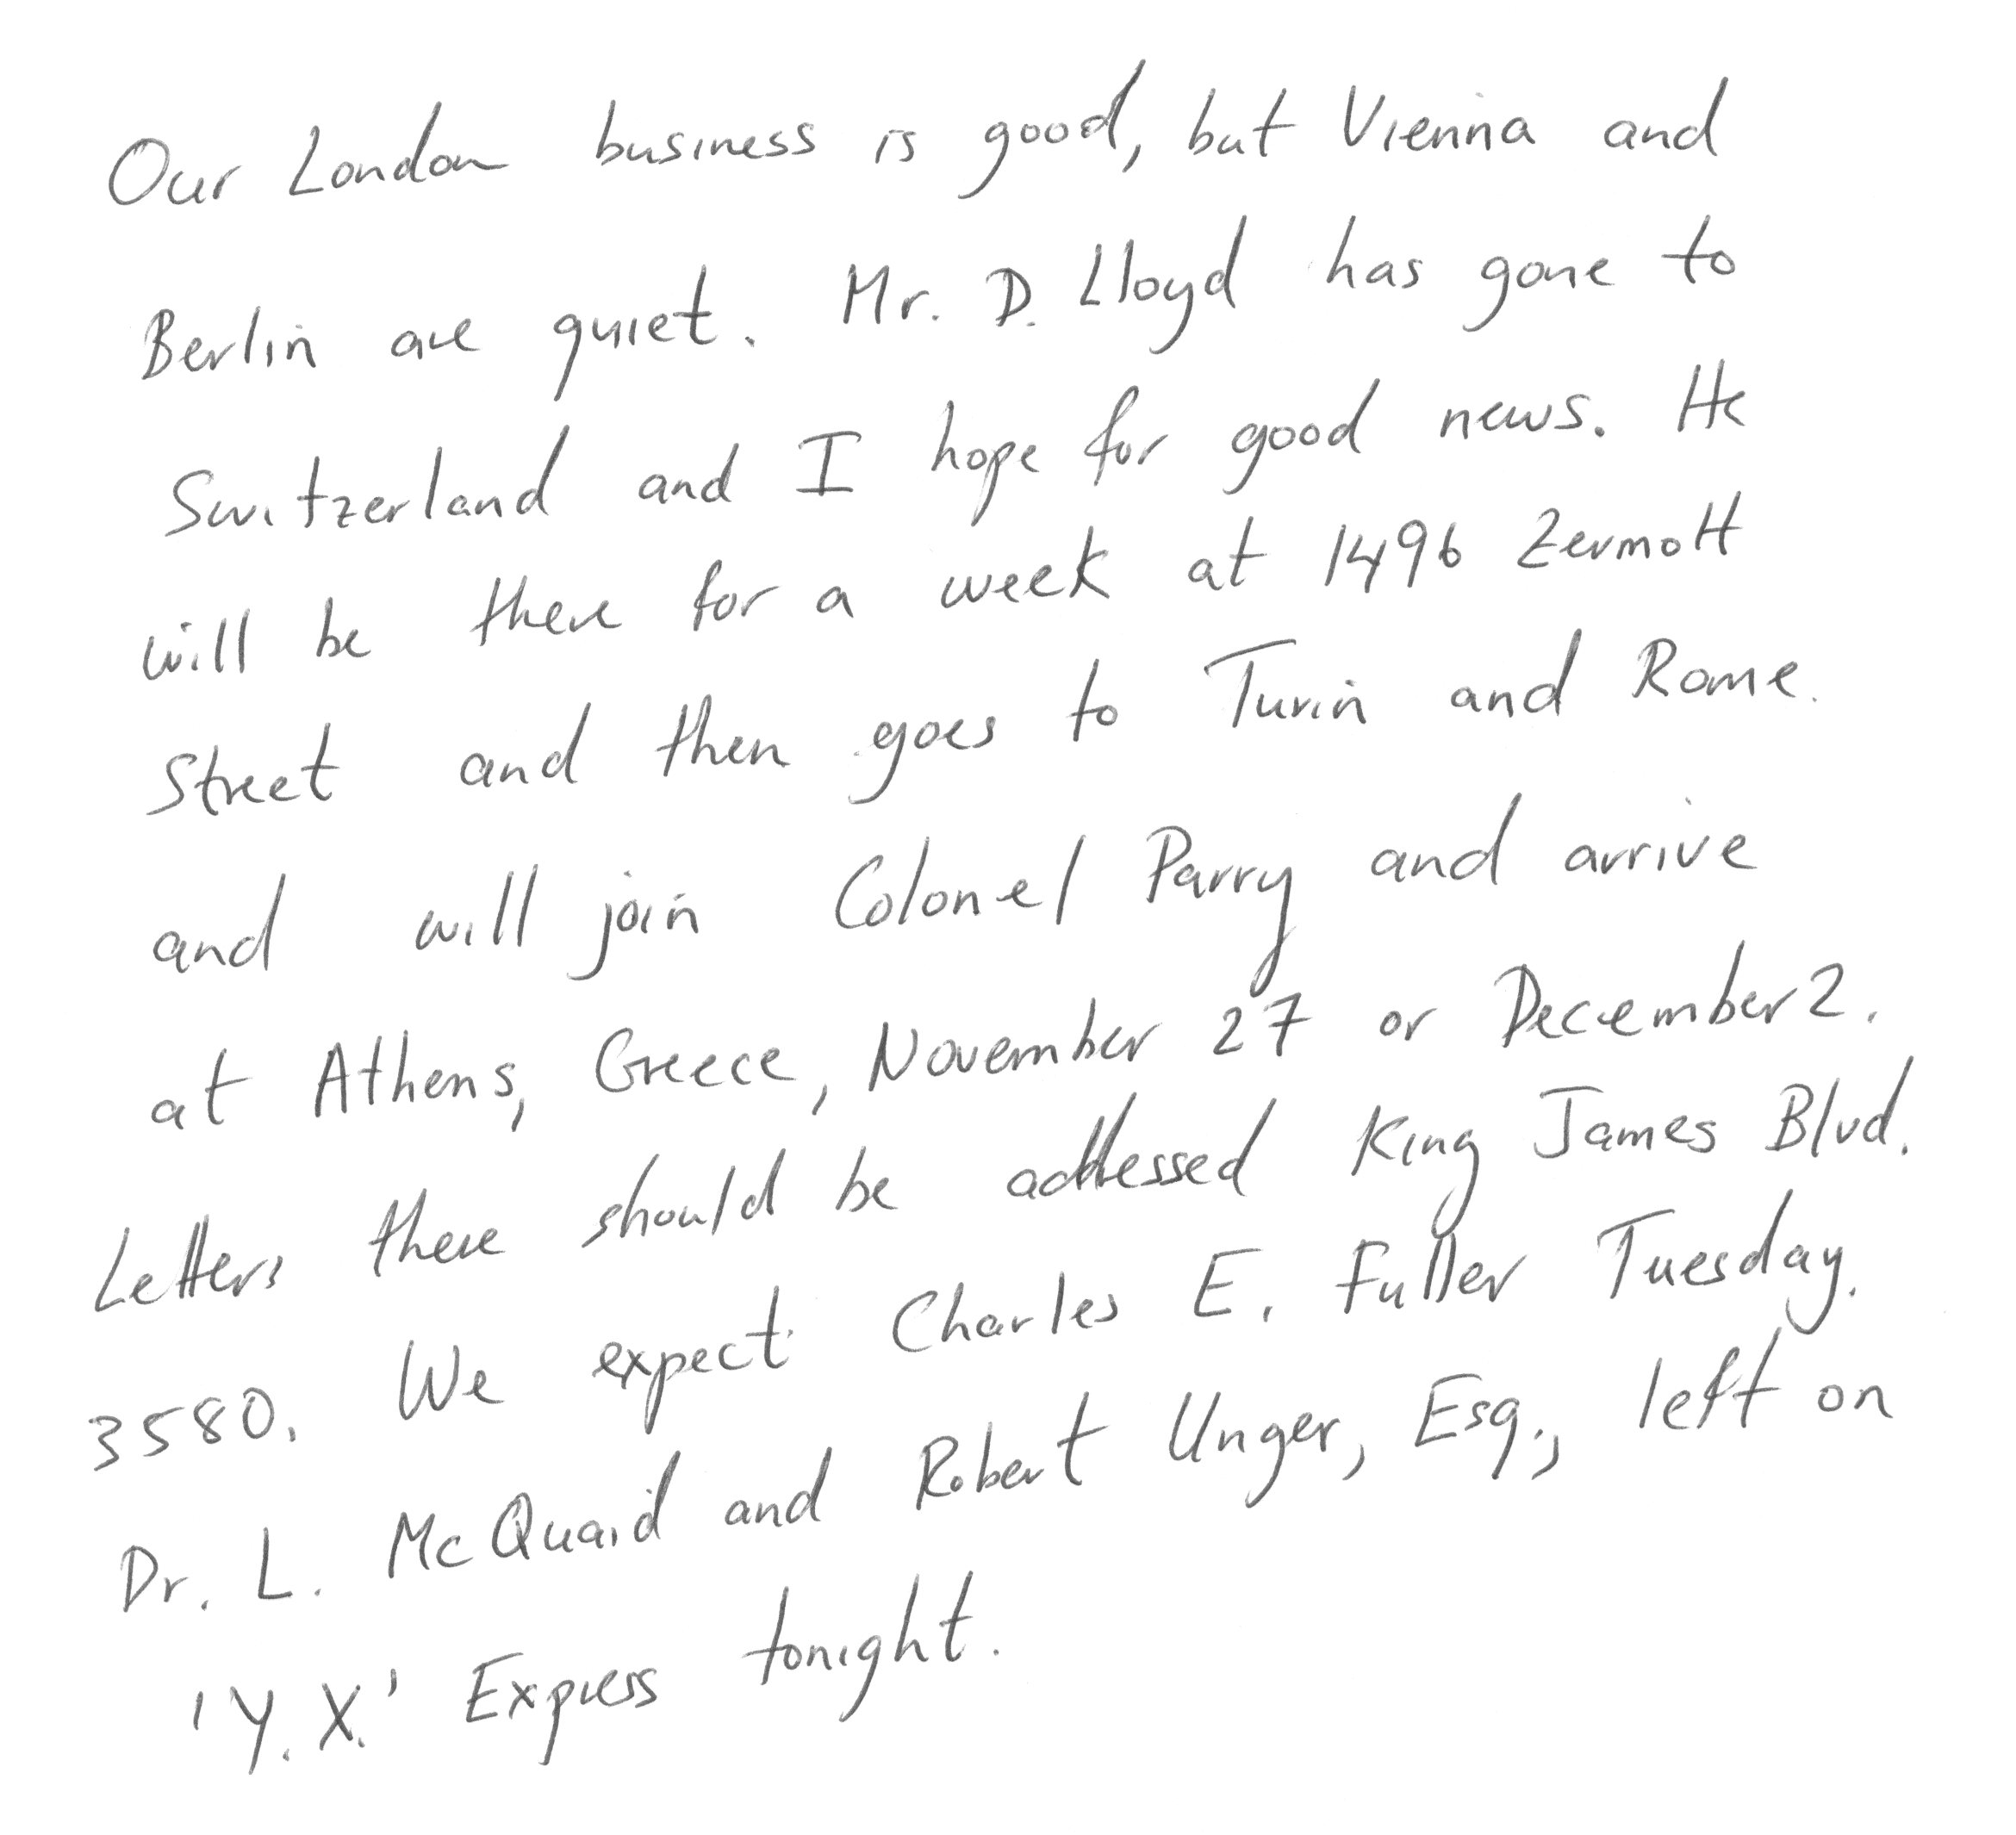 Our London business is good, but Vienna and
Berlin are quiet. Mr. D. Lloyd has gone to
Switzerland and I hope for good news. He
will be there for a week at 1496 Zermott
Street and then goes to Turin and Rome.
and will join Colonel Parry and arrive
at Athens, Greece, November 27 or December 2.
Letters there should be addressed King James Blvd.
3580. We expect Charles E. Fuller Tuesday.
Dr. L. McQuaid and Robert Unger, Esq., left on
'Y.X.' Express tonight.